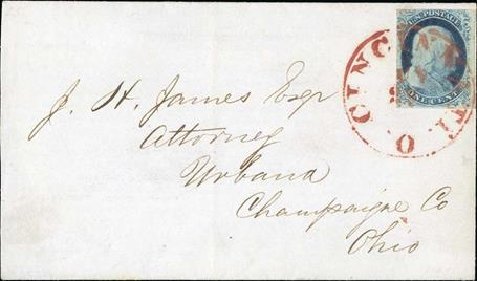 U.S. POSTAGE
ONE CENT
CINCINNATI. O.
J. H. James Esqr
Attorney
Urbana
Champaigne Co
Ohio